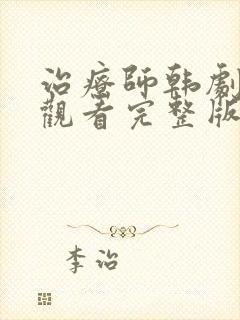 治療師韩劇
觀看完整版
李治